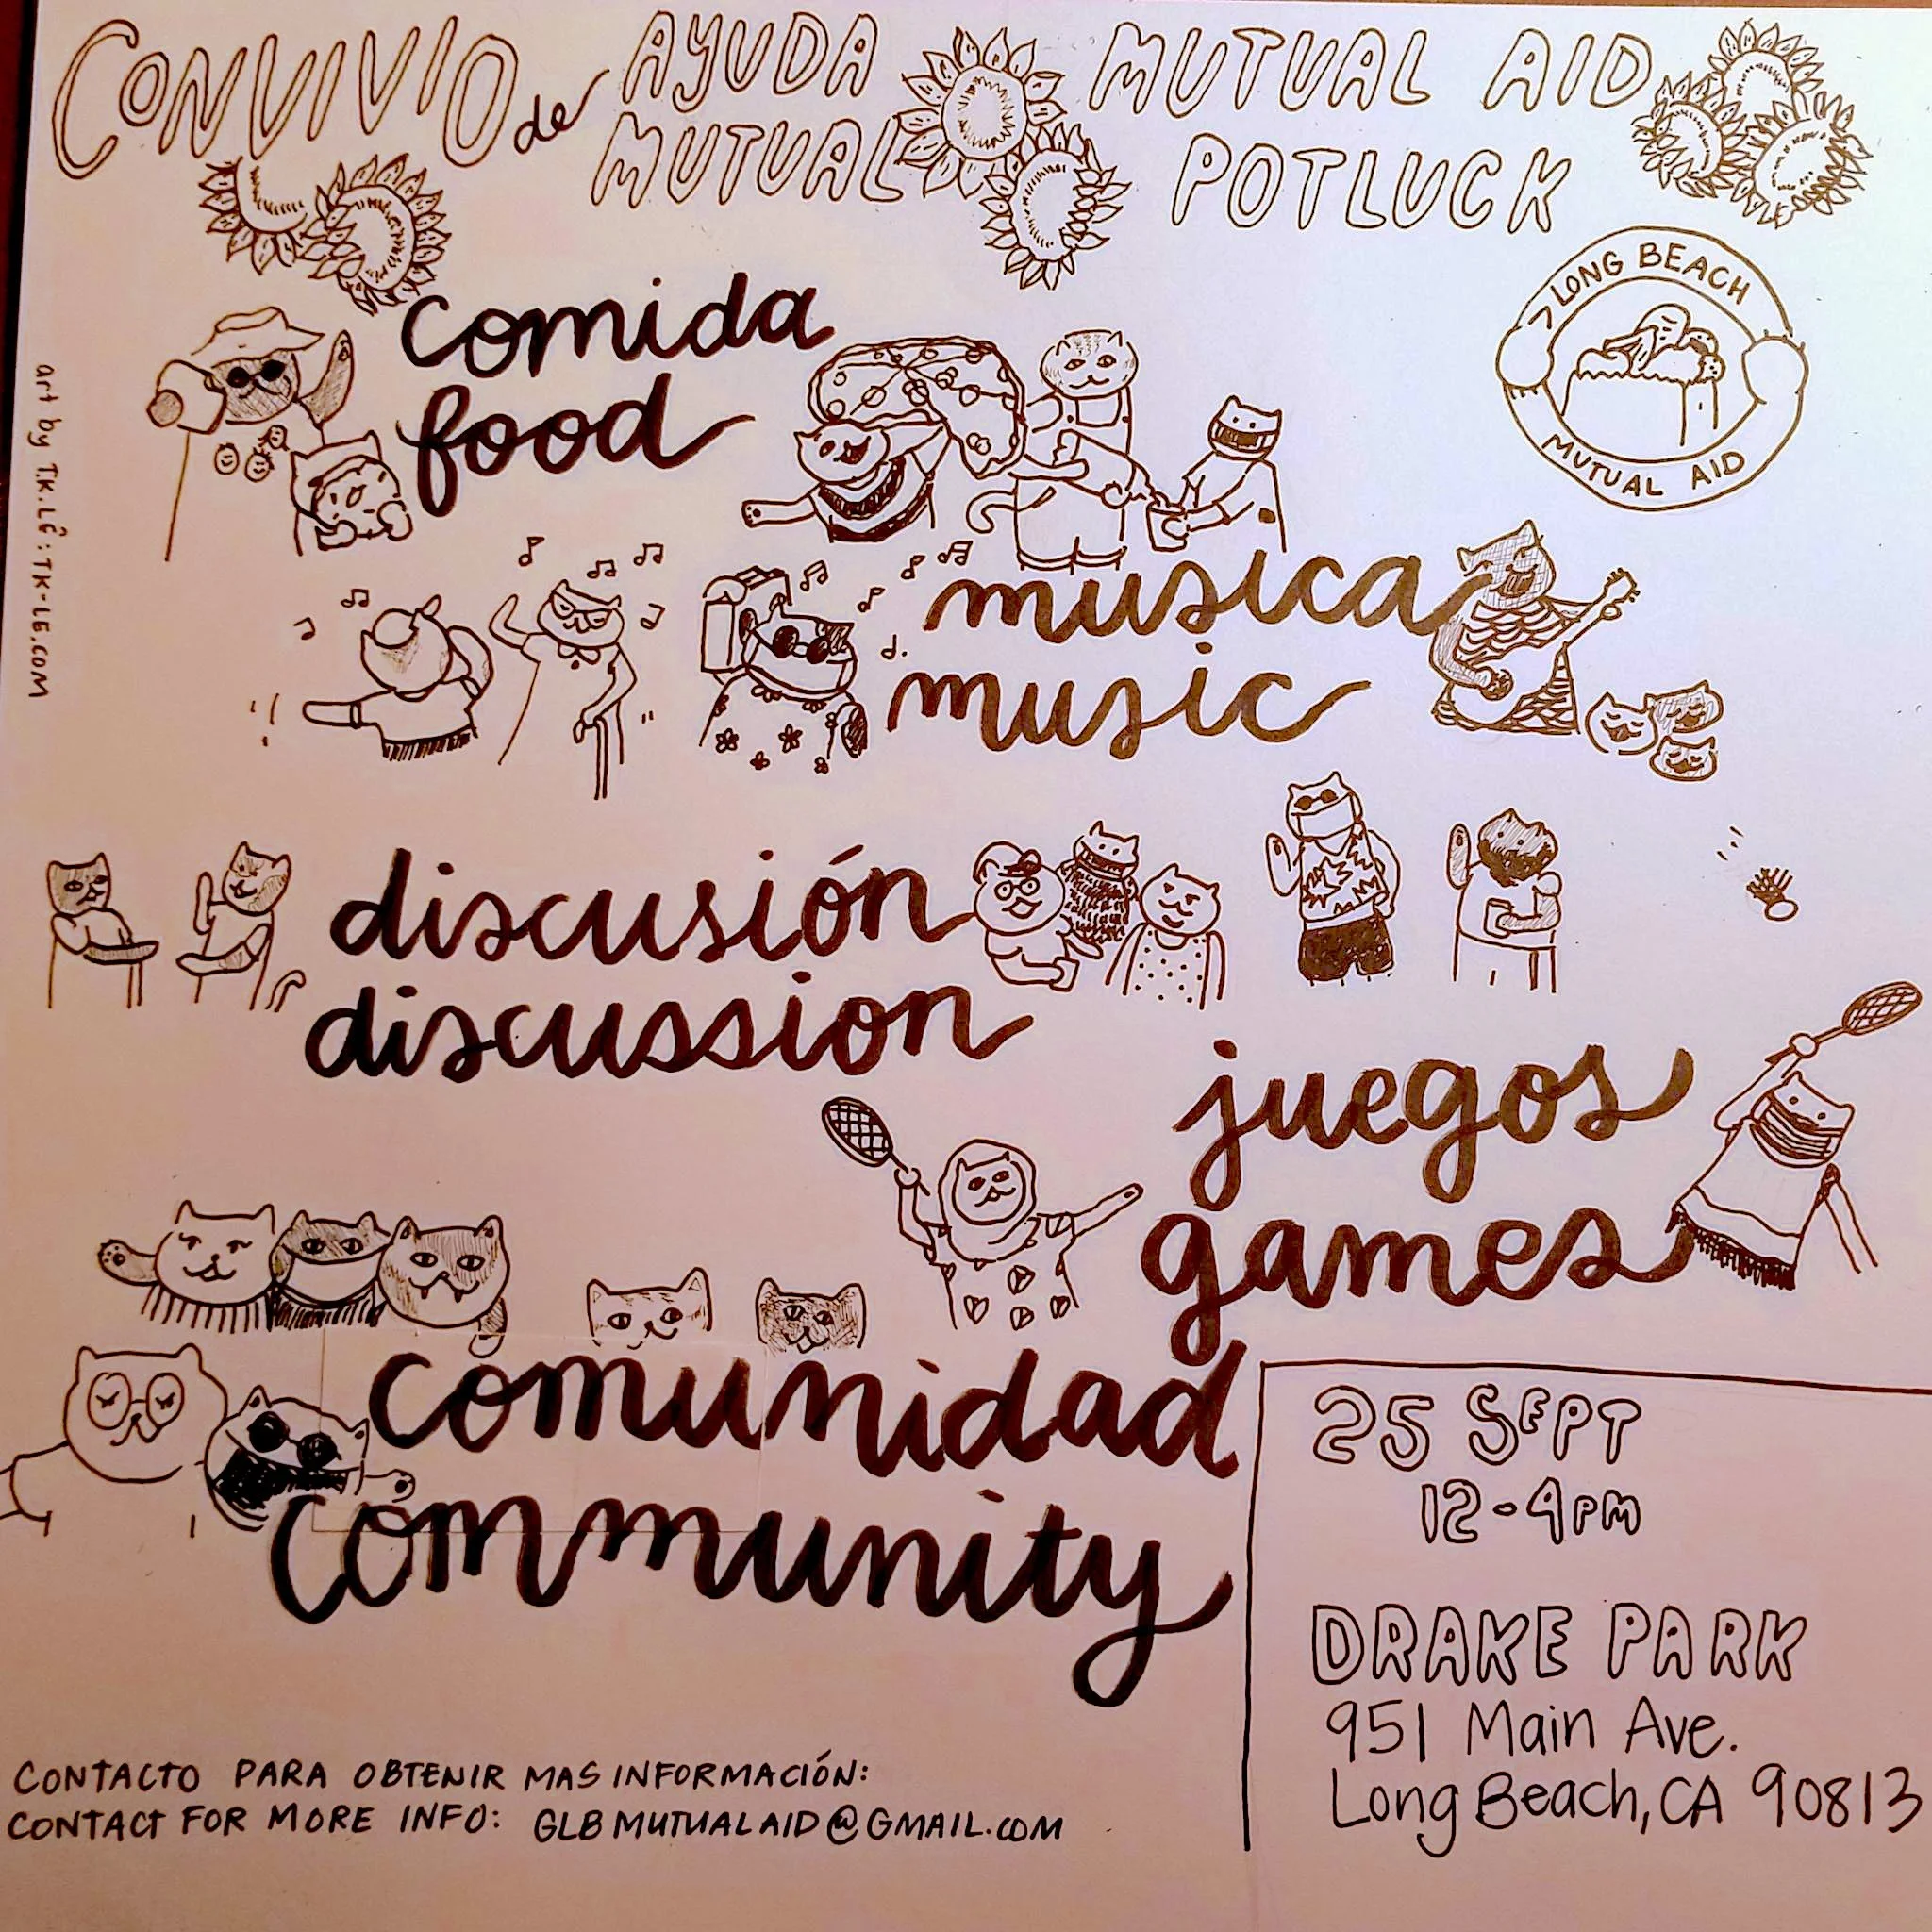 CONVIVIO de AYUDA MUTUAL
MUTUAL AID POTLUCK
LONG BEACH
MUTUAL AID
comida
food
musica
music
discusión
discussion
juegos
games
comunidad
community
25 SEPT
12-4PM
DRAKE PARK
951 Main Ave.
Long Beach, CA 90813
CONTACTO PARA OBTENIR MAS INFORMACIÓN:
CONTACT FOR MORE INFO: GLBMUTUALAID@GMAIL.COM
art by T.K. LÊ: TK-LE.COM